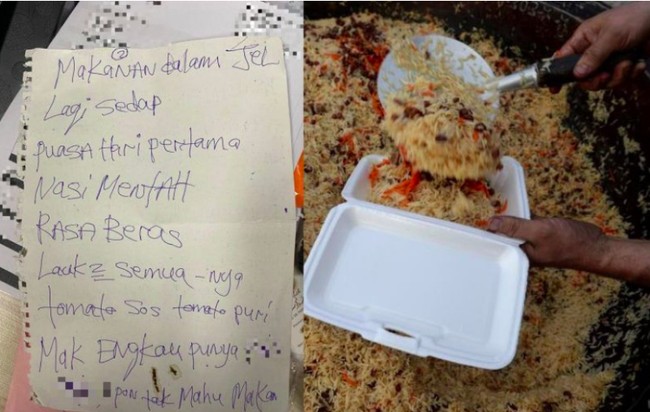 Makanan dalam Jel
Lagi sedap
Puasa Hari pertama
Nasi Mentah
RASA Beras
Lauk2 semua-nya
tomato sos tomato puri
Mak Engkau punya
pon tak Mahu Makan